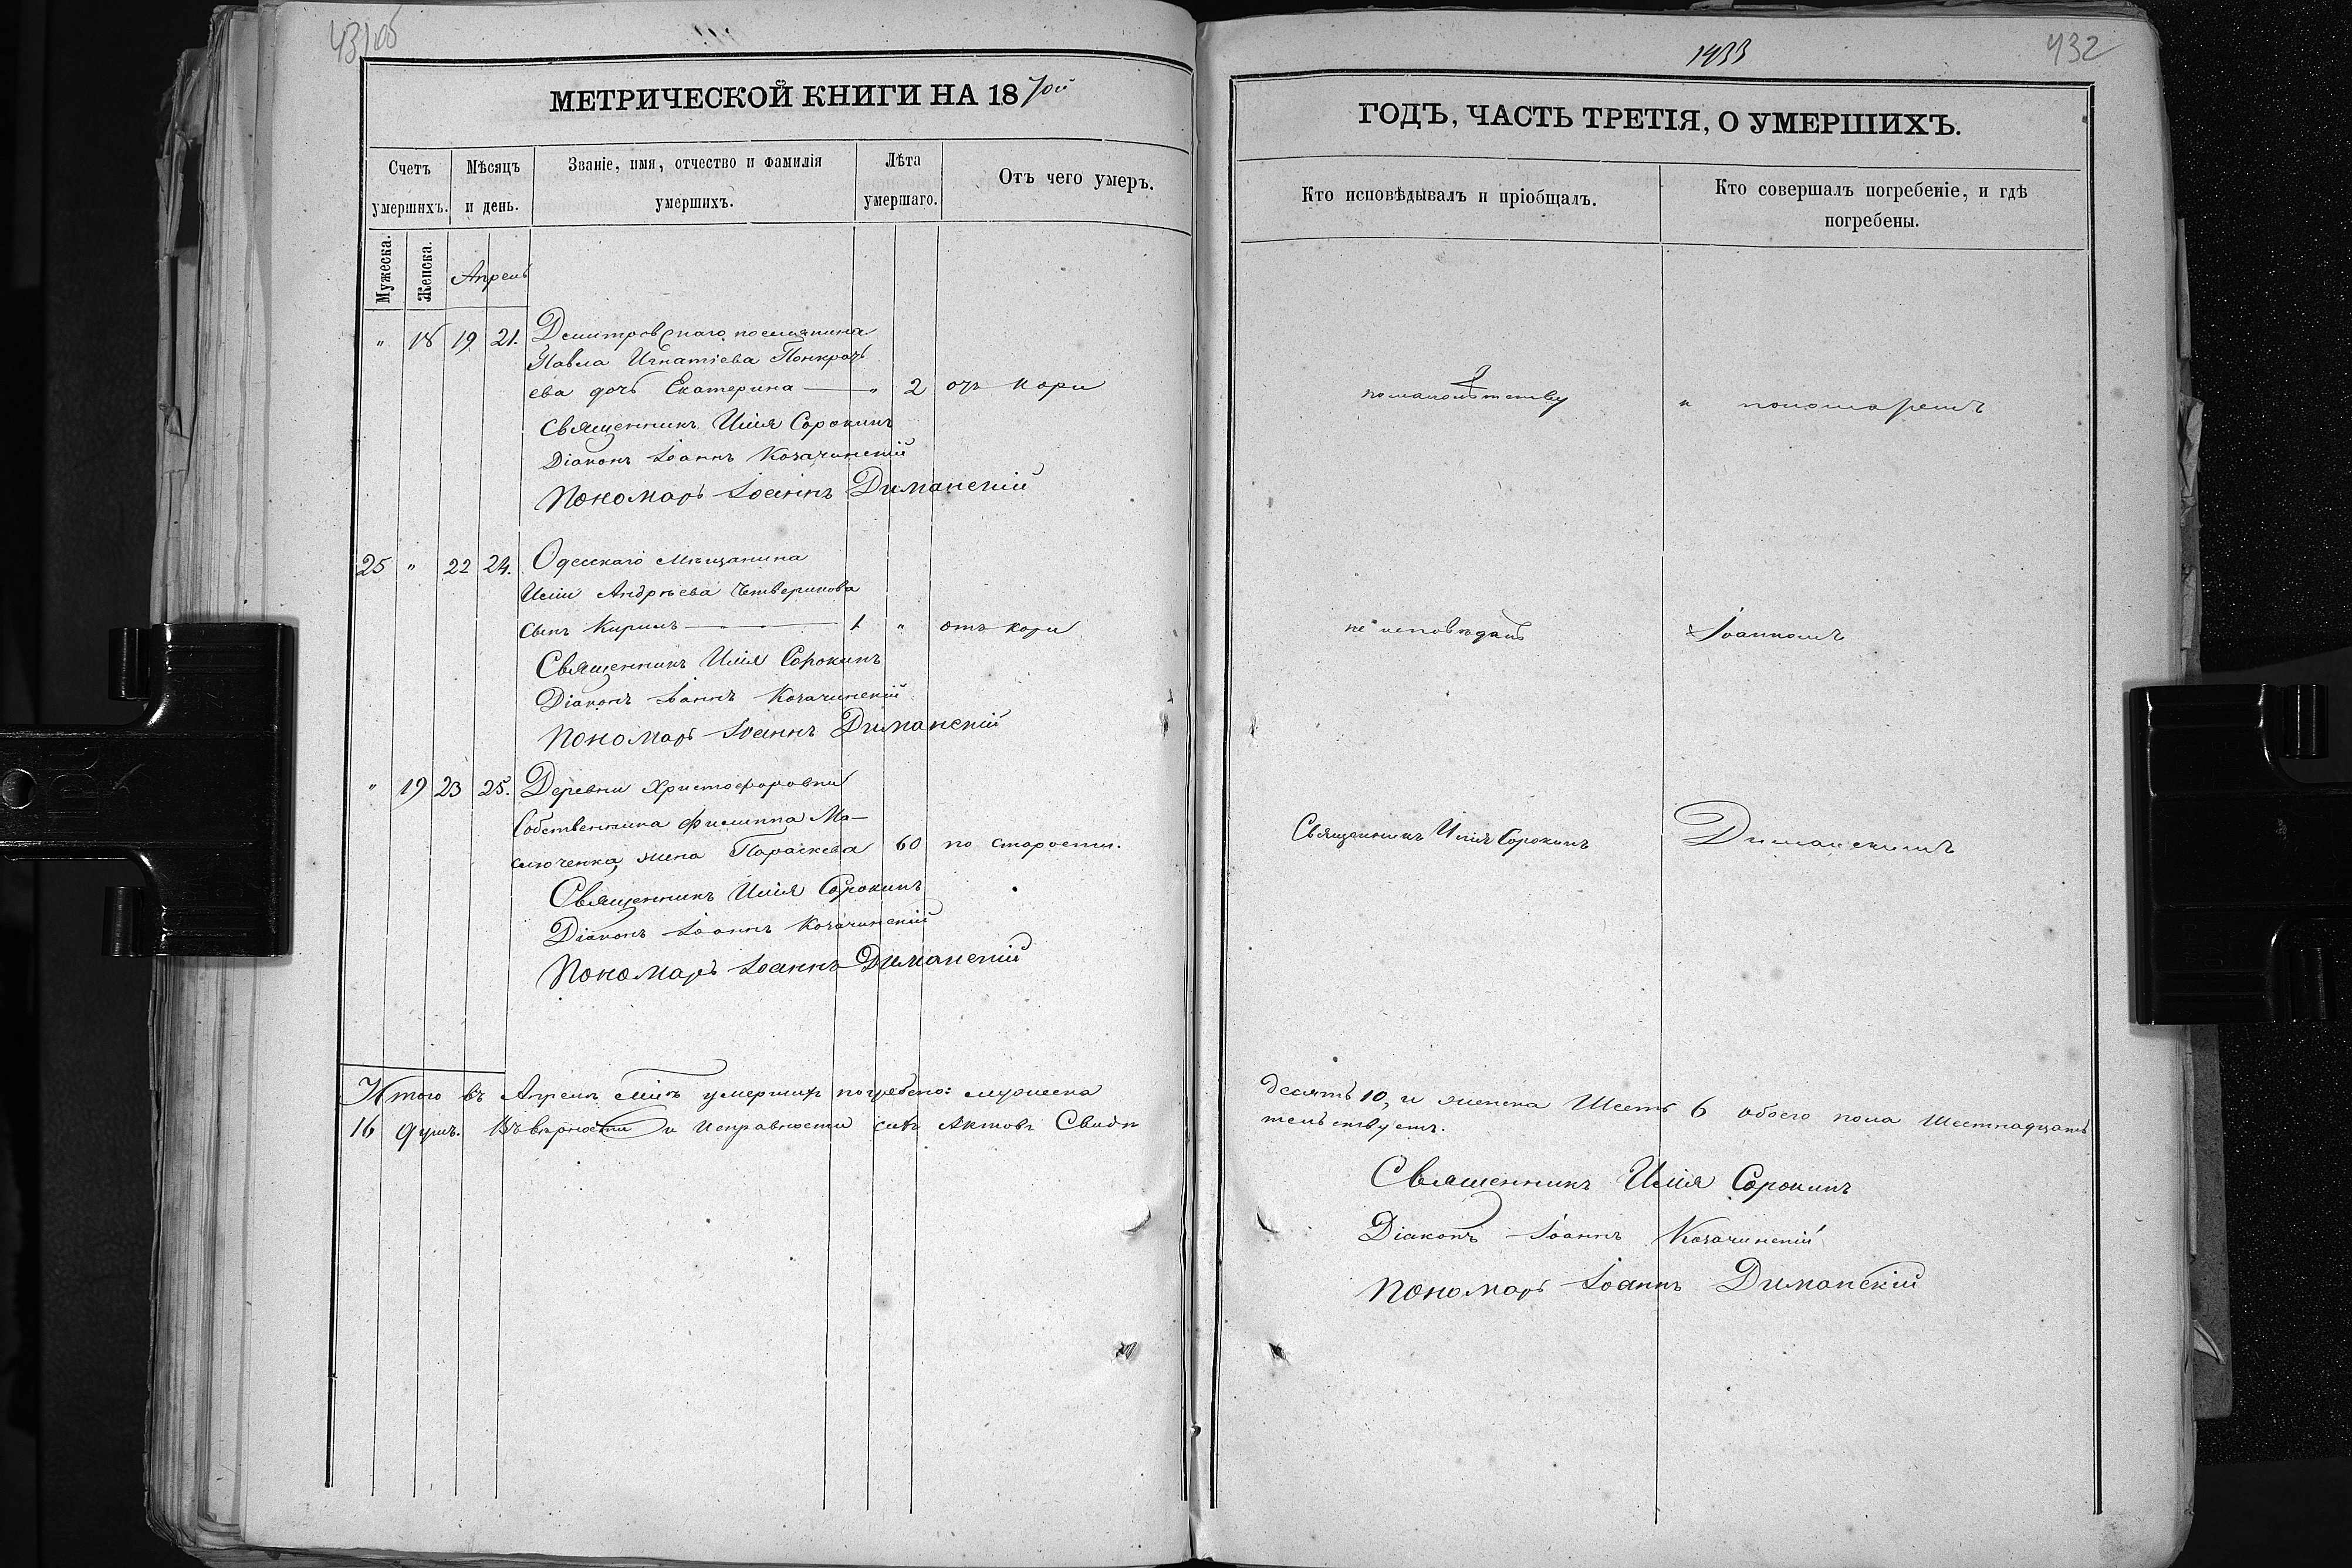 431об
МЕТРИЧЕСКОЙ КНИГИ НА 1870й
Счетъ умершихъ.
Мѣсяцъ и день.
Званіе, имя, отчество и фамилія умершихъ.
Лѣта умершаго.
Отъ чего умеръ.
Мужеска.
Женска.
Апрель
" 18 19 21. Дмитровскаго поселянина
Павла Игнатіева Понкрать
ева дочь Екатерина — " 2 отъ кори
Священникъ Илія Сорокинъ
Діаконъ Іоаннъ Козачинскій
Пономарь Іоаннъ Диманскій
25 " 22 24. Одесскаго Мѣщанина
Иліи Андрѣева Четверикова
сынъ Кирилъ — 1 " отъ кори
Священникъ Илія Сорокинъ
Діаконъ Іоаннъ Козачинскій
Пономарь Іоаннъ Диманскій
" 19 23 25. Деревни Христофоровки
Собственника Филиппа Ма-
слюченка, жена Параскева 60 по старости.
Священникъ Илія Сорокинъ
Діаконъ Іоаннъ Козачинскій
Пономарь Іоаннъ Диманскій
Итого въ Апрелѣ м̃цѣ умершихъ погребено: мужеска
16 душъ. Въ вѣрности и исправности сихъ Актовъ Свидѣ
1933
432
ГОДЪ, ЧАСТЬ ТРЕТІЯ, О УМЕРШИХЪ.
Кто исповѣдывалъ и пріобщалъ.
Кто совершалъ погребеніе, и гдѣ погребены.
по малолѣтству
и пономаремъ
не исповѣданъ
Іоанномъ
Священникъ Илія Сорокинъ
Диманскимъ
десять 10, и женска Шесть 6 обоего пола Шестнадцать
тельствуемъ.
Священникъ Илія Сорокинъ
Діаконъ Іоаннъ Козачинскій
Пономарь Іоаннъ Диманскій